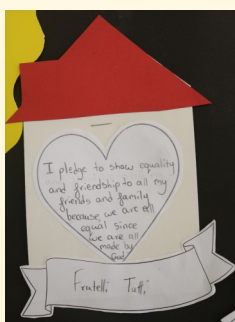 I pledge to show equality
and friendship to all my
friends and family
because, we are all
equal since
we are all
made by
God
Fratelli Tutti